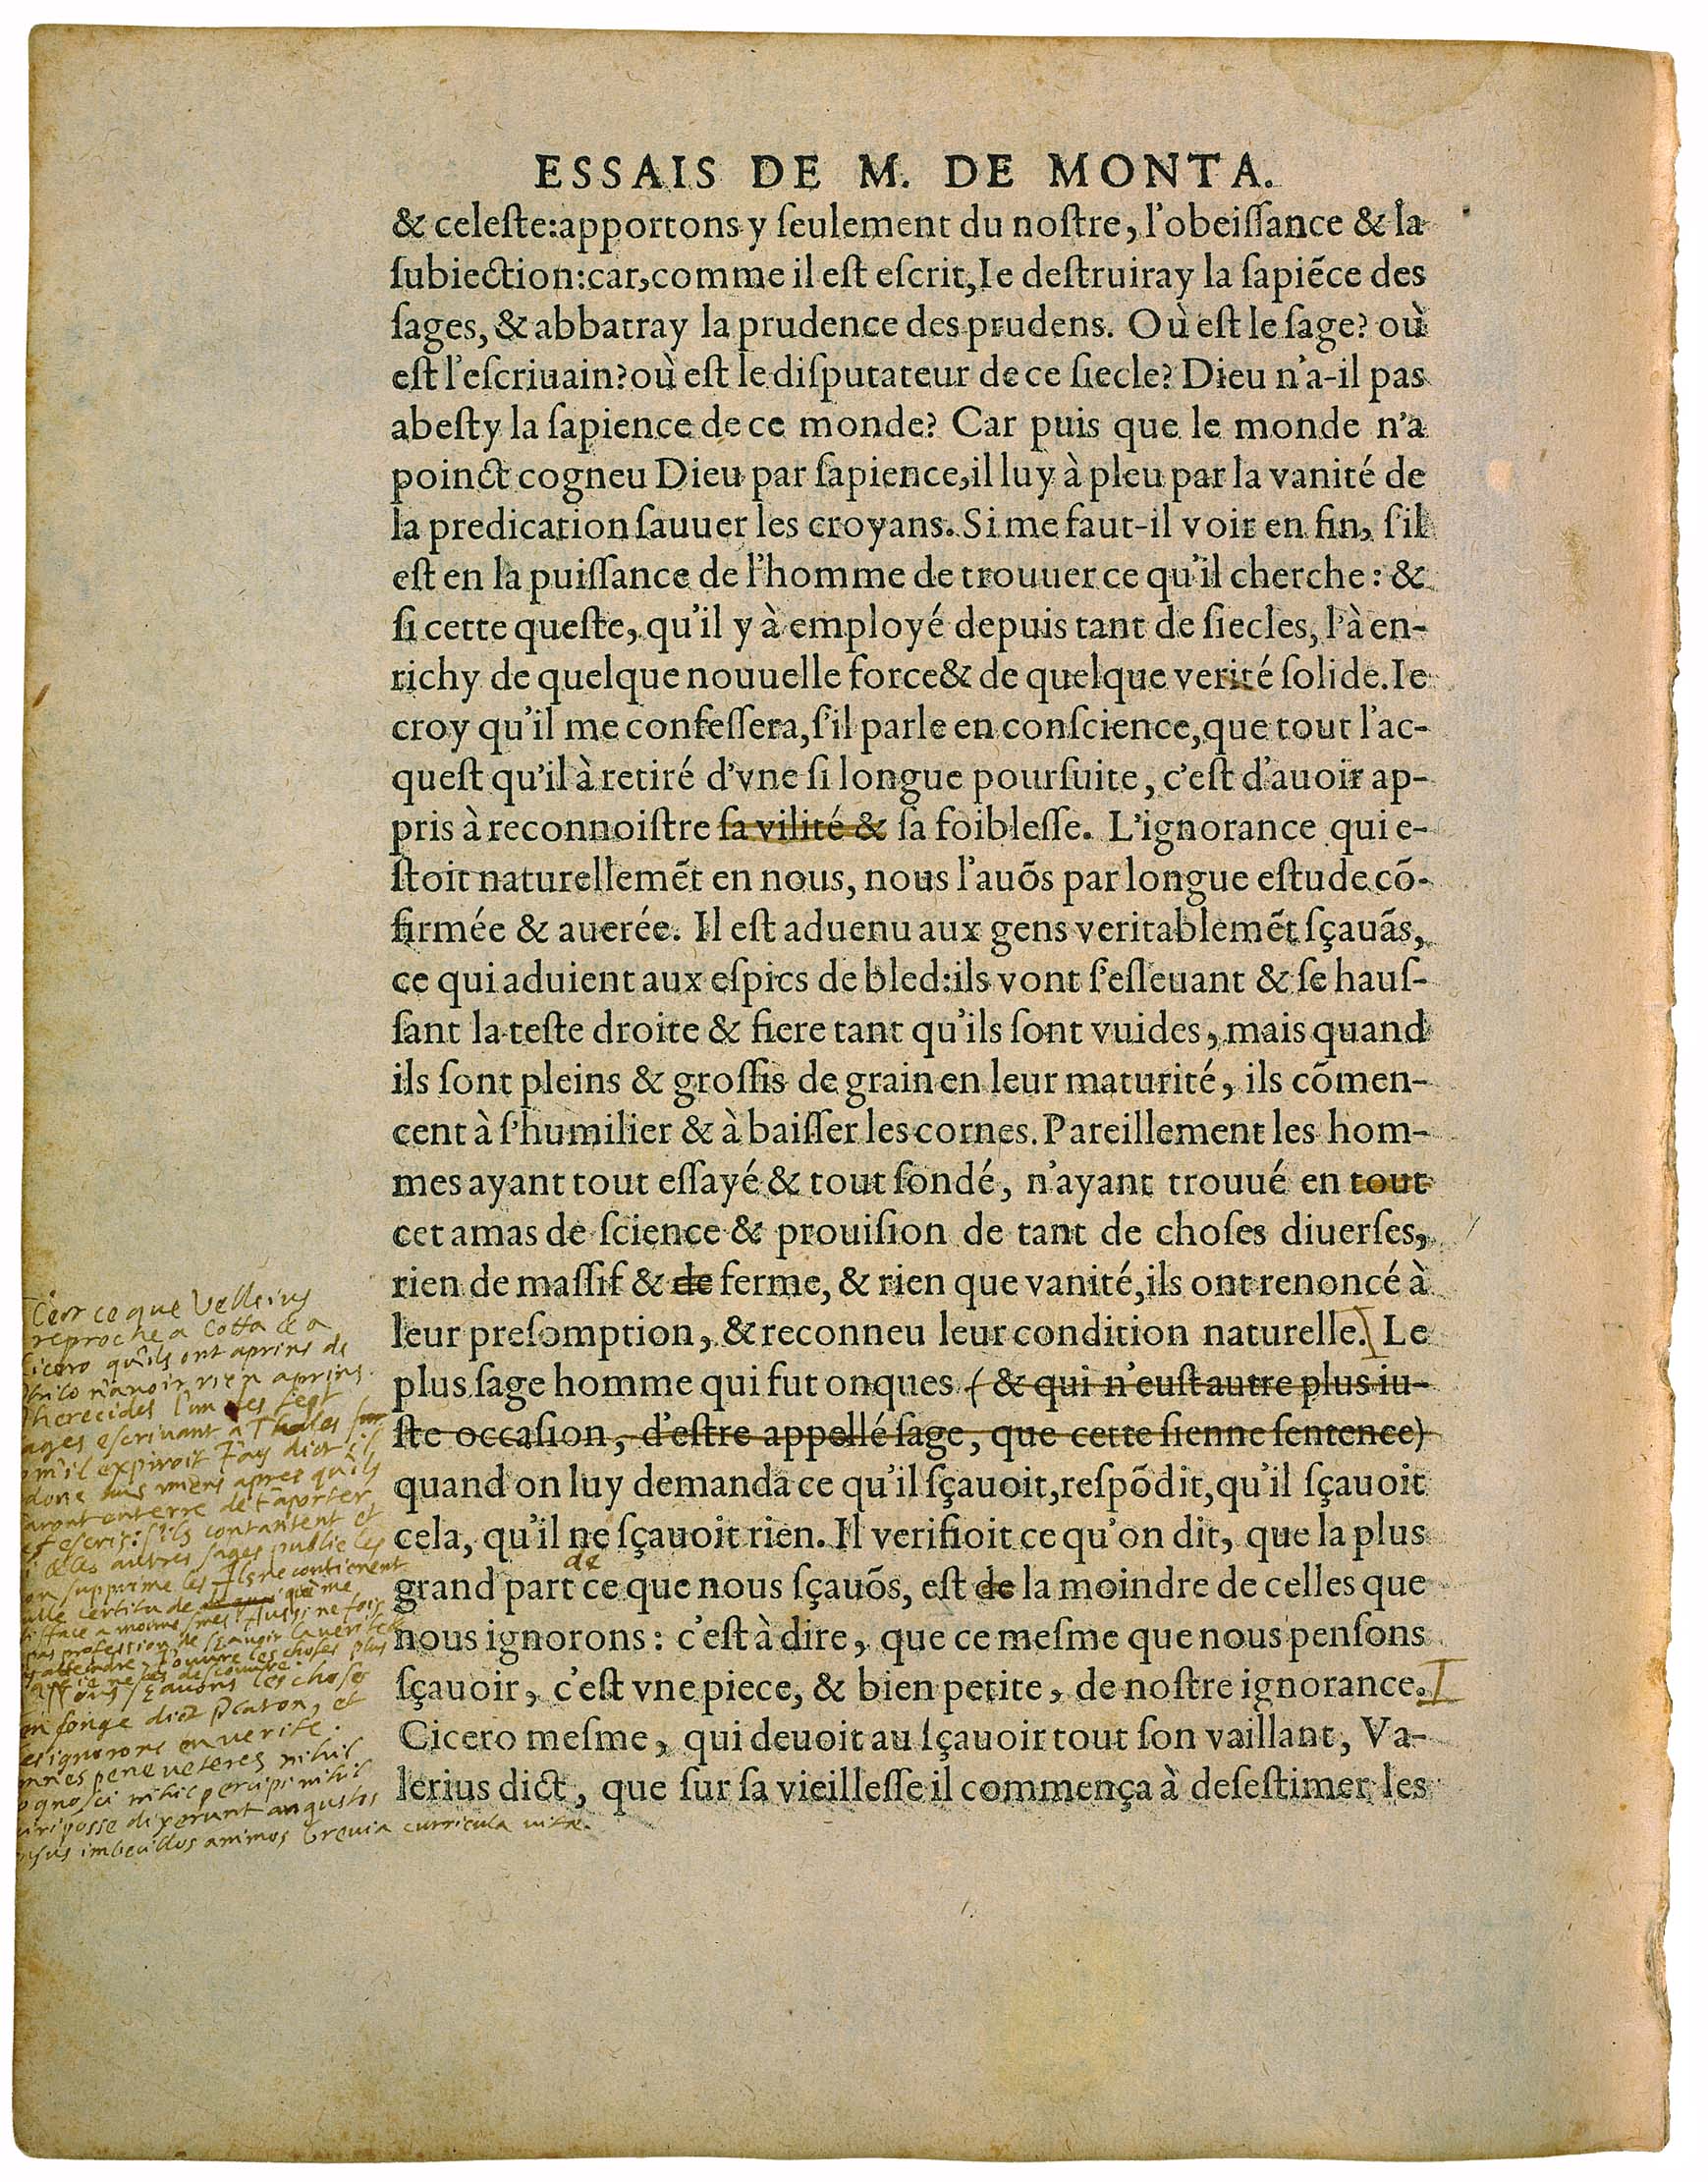 ESSAIS DE M. DE MONTA.
& celeſte:apportons y ſeulement du noſtre, l'obeiſſance & la
ſubiection:car,comme il eſt eſcrit,Ie deſtruiray la ſapiẽce des
ſages, & abbatray la prudence des prudens. Où eſt le ſage? où
eſt l'eſcriuain?où eſt le diſputateur de ce ſiecle? Dieu n'a-il pas
abeſty la ſapience de ce monde? Car puis que le monde n'a
poinct cogneu Dieu par ſapience,il luy à pleu par la vanité de
la predication ſauuer les croyans. Si me faut-il voir en fin, ſ'il
eſt en la puiſſance de l'homme de trouuer ce qu'il cherche: &
ſi cette queſte, qu'il y à employé depuis tant de ſiecles, l'à en-
richy de quelque nouuelle force & de quelque verité ſolide. Ie
croy qu'il me confeſſera, ſ'il parle en conſcience,que tout l'ac-
queſt qu'il à retiré d'vne ſi longue pourſuite, c'eſt d'auoir ap-
pris à reconnoiſtre ſa vilité & ſa foibleſſe. L'ignorance qui e-
ſtoit naturellemẽt en nous, nous l'auõs par longue eſtude cõ-
firmée & auerée. Il eſt aduenu aux gens veritablemẽt ſçauãs,
ce qui aduient aux eſpics de bled:ils vont ſ'eſleuant & ſe hauſ-
ſant la teſte droite & fiere tant qu'ils ſont vuides, mais quand
ils ſont pleins & groſſis de grain en leur maturité, ils cõmen-
cent à ſ'humilier & à baiſſer les cornes. Pareillement les hom-
mes ayant tout eſſayé & tout ſondé, n'ayant trouué en tout
cet amas de ſcience & prouiſion de tant de choſes diuerſes,
rien de maſſif & de ferme, & rien que vanité,ils ont renoncé à
leur preſomption, & reconneu leur condition naturelle. Le
plus ſage homme qui fut onques (& qui n'euſt autre plus iu-
ſte occaſion, d'eſtre appellé ſage, que cette ſienne ſentence)
quand on luy demanda ce qu'il ſçauoit,reſpõdit,qu'il ſçauoit
cela, qu'il ne ſçauoit rien. Il verifioit ce qu'on dit, que la plus
de
grand part ce que nous ſçauõs, eſt de la moindre de celles que
nous ignorons: c'eſt à dire, que ce meſme que nous penſons
ſçauoir, c'eſt vne piece, & bien petite, de noſtre ignorance.
Cicero meſme, qui deuoit au ſçauoir tout ſon vaillant, Va-
lerius dict, que ſur ſa vieilleſſe il commença à deſeſtimer les
C'est ce que Velleius
reproche a Cotta & a
Cicero qu'ils ont aprins de
Philo n'avoir rien aprins.
Pherecides l'un des sept
sages escrivant a Thales
com'il expiroit J'ay dict il
apres qu'ils
enterre de t'aporter
escris: s'ils contantent et
& les autres sages publie les
supprime les Ils ne contienent
nulle certitude qui me
Aussi ne fois
pas profession de sçavoir la verite
atteindre J'ouvre les choses plus
que je ne les descouvre.
sçavons les choses
en songe dict Platon, et
les ignorons en verite.
omnes pene veteres nihil
cognosci nihil percipi nihil
sciri posse dixerunt angustos
sensus imbecillos animos brevia curricula vitæ.